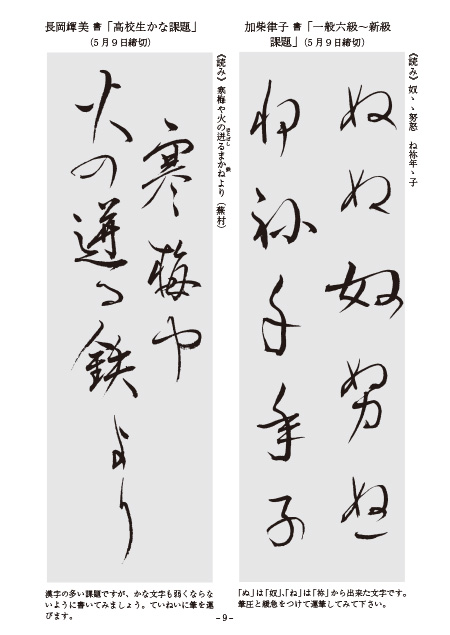 加柴律子 書「一般六級～新級
課題」(5月9日締切)
《読み》奴ゝゝ努怒 ね祢年ゝ子
ぬぬ奴努
ね祢年年子
「ぬ」は「奴」、「ね」は「祢」から出来た文字です。
筆圧と緩急をつけて運筆してみて下さい。
長岡輝美 書「高校生かな課題」
(5月9日締切)
《読み》寒梅や火の迸るまかねより(蕪村)
ほとばし
鉄
寒梅や
火の迸る鉄より
漢字の多い課題ですが、かな文字も弱くならな
いように書いてみましょう。ていねいに筆を運
びます。
-9-